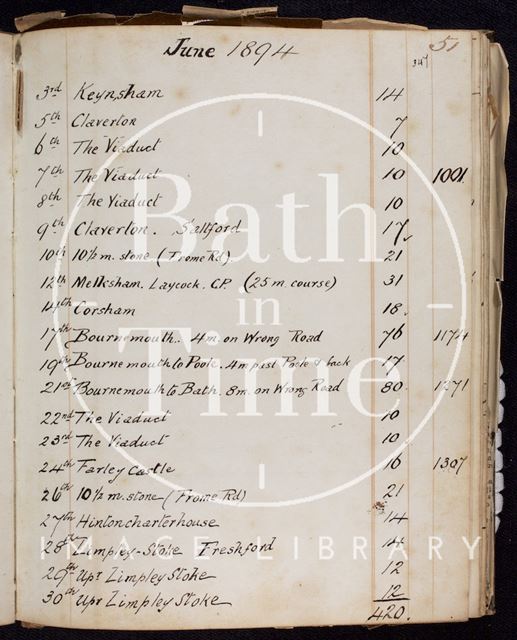 51
June 1894
347
3rd Keynsham 14
5th Claverton 7
6th The Viaduct 10
7th The Viaduct 10 1001
8th The Viaduct 10
9th Claverton. Saltford 17
10th 10½ m. stone (Frome Rd) 21
12th Melksham. Laycock. C.P. (25 m course) 31
14th Corsham 18.
17th Bournemouth. 4m. on Wrong Road 76 1174
19th Bournemouth to Poole. 4m past Poole & back 17
21st Bournemouth to Bath. 8m. on Wrong Road 80 1271
22nd The Viaduct 10
23rd The Viaduct 10
24th Farley Castle 16 1307
26th 10½ m. stone (Frome Rd) 21
27th Hintoncharterhouse 14
28th Limpley-Stoke Freshford 14
29th Upr Limpley Stoke 12
30th Upr Limpley Stoke 12
420.
Bath
in
Time
IMAGE LIBRARY